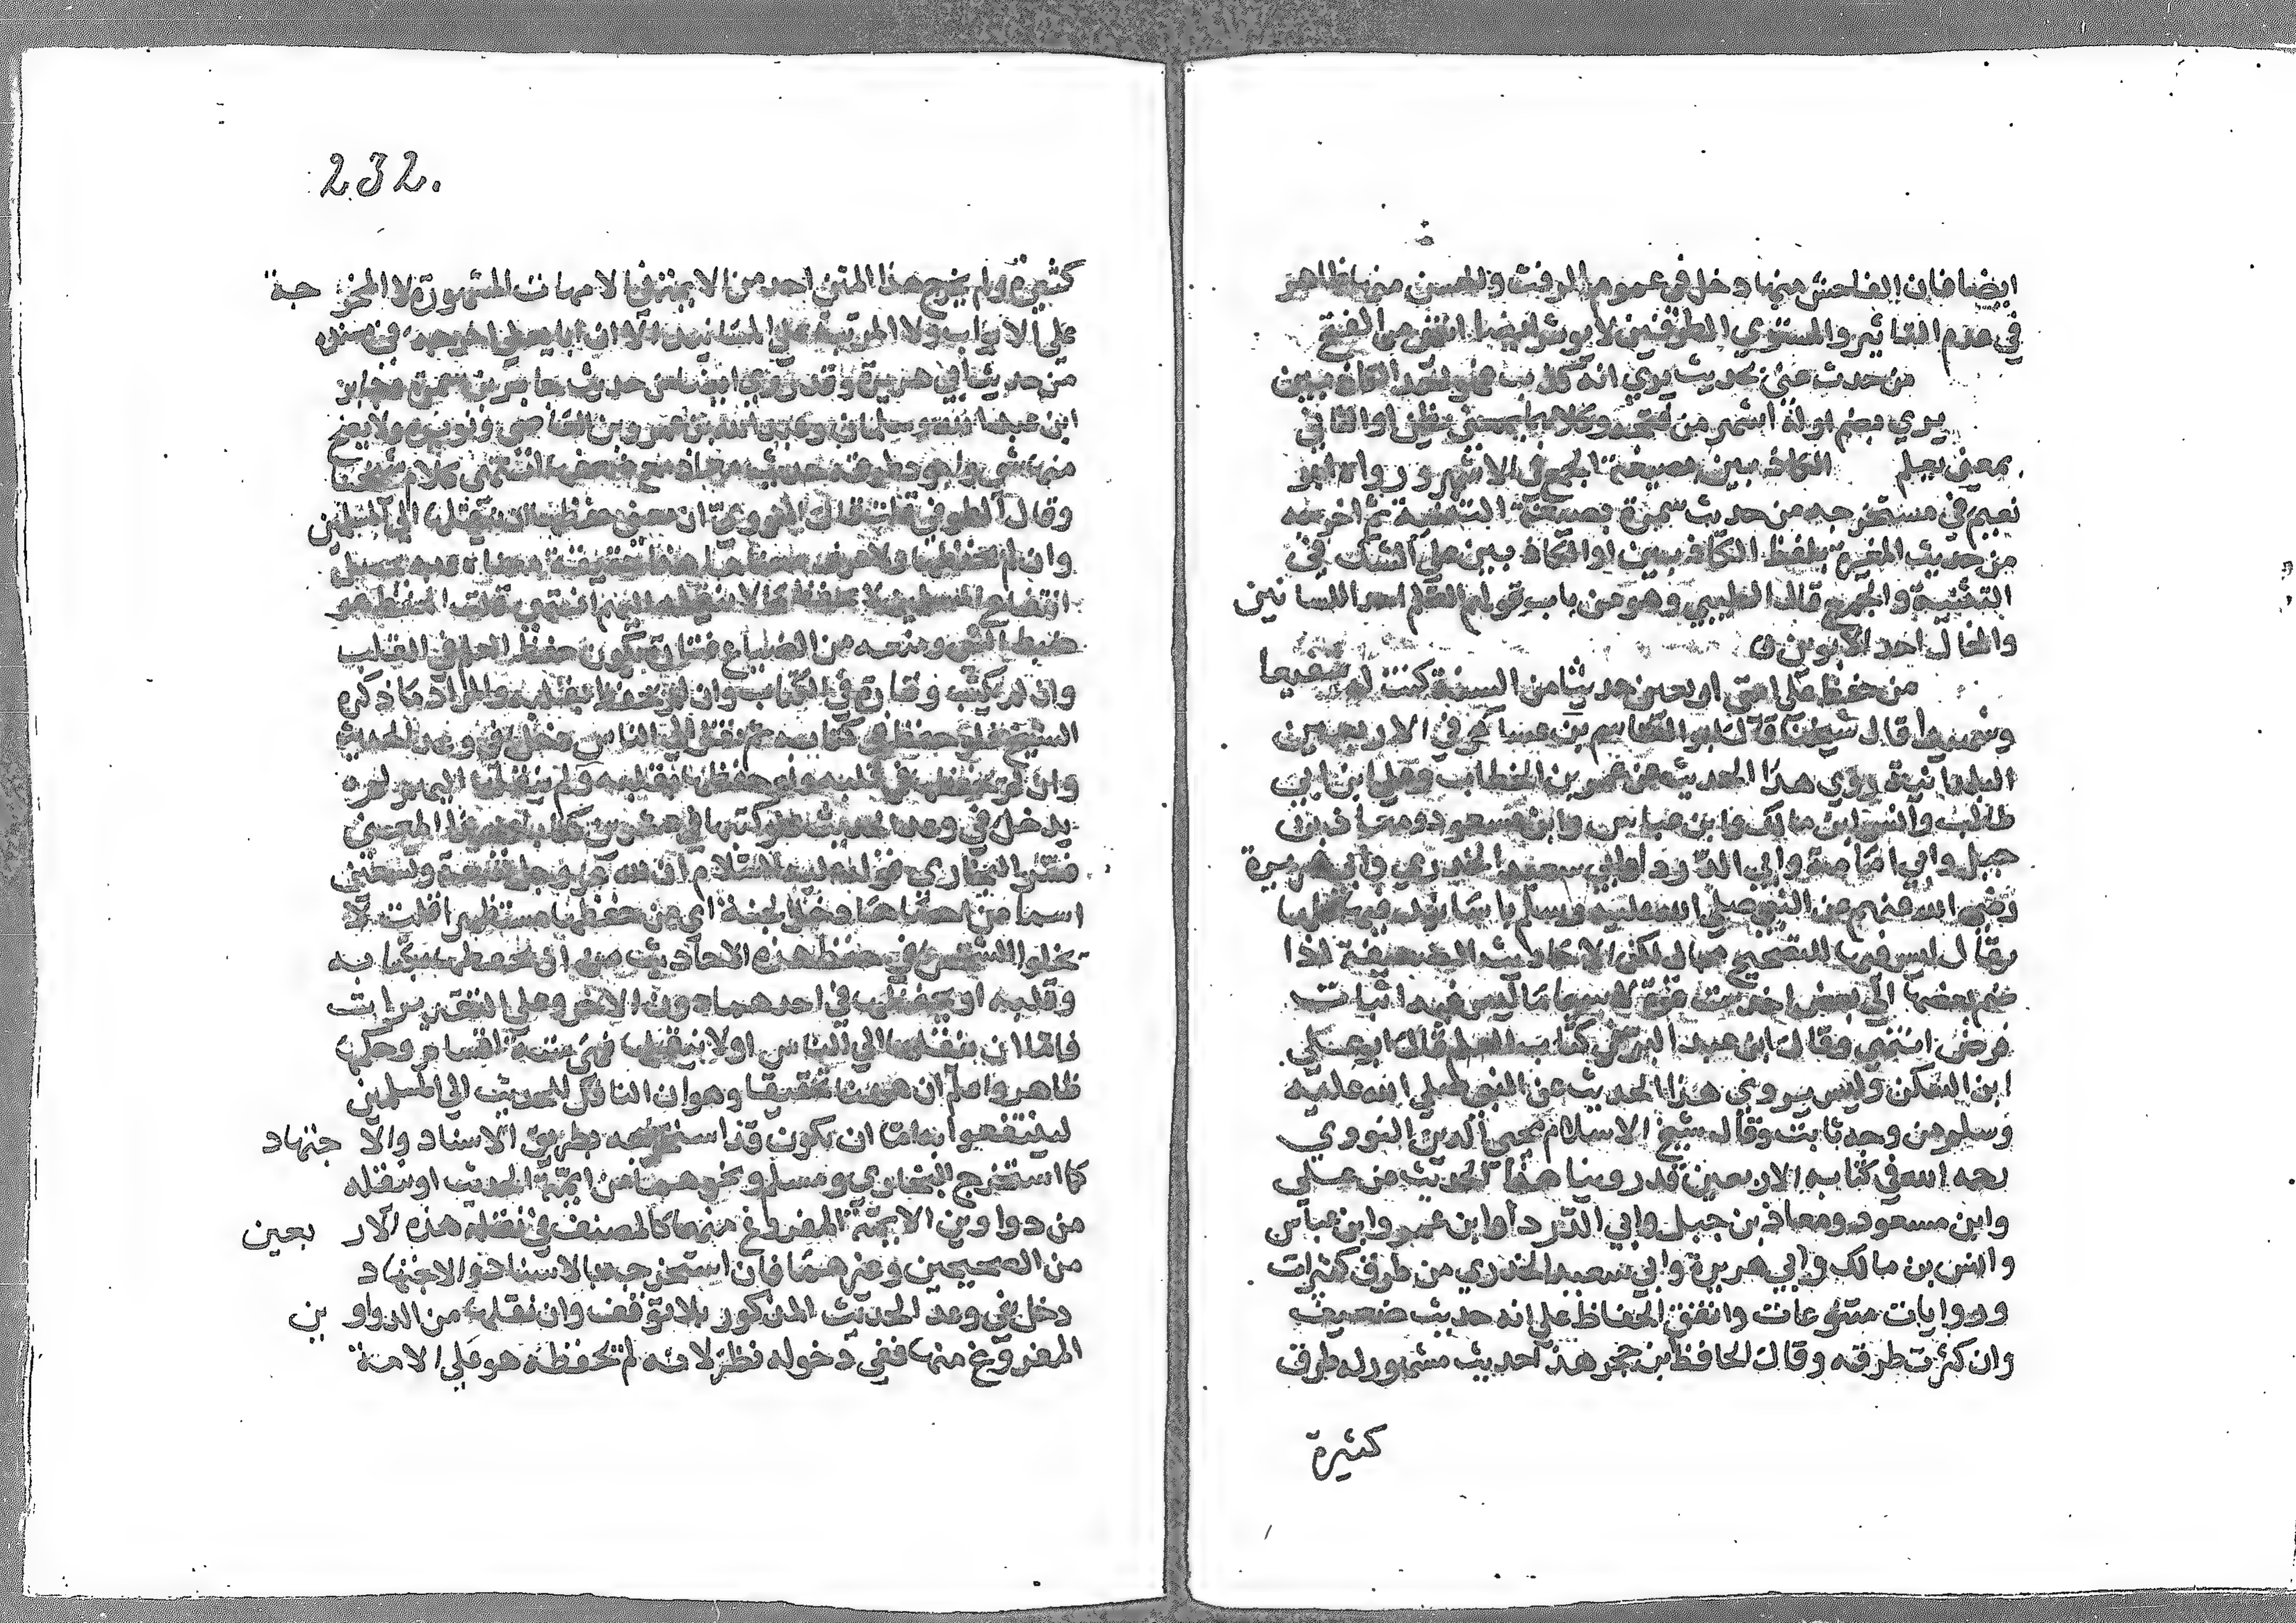 ايضا فان الفاحش منها دخل في عموم الرفث والحسن منها ظاهر
في عدم التاثير والمستوي الطرفين لا يوثر ايضا انتهى من الفتح
من حدث عني بحديث يري انه كذب فهو احد الكاذبين
يري بضم اوله اشهر من فتحه وكلاهما بمعنى يظن او الثاني
بمعنى يعلم الكاذبين بصيغة الجمع في الاشهر ورواه ابو
نعيم في مستخرجه من حديث سمرة بصيغة التثنية ثم اخرجه
من حديث المغيرة بلفظ الكاذبين او الكاذبين على الشك في
التثنية والجمع قال الطيبي وهو من باب قولهم القلم احد اللسانين
والخال احد الابوين
من حفظ على امتي اربعين حديثا من السنة كنت له شفيعا
وشهيدا قال شيخنا قال ابو القاسم بن عساكر في الاربعين
البلدانية روي هذا الحديث عن عمر بن الخطاب وعلي ابن ابي
طالب وانس ابن مالك وابن عباس وابن مسعود ومعاذ بن
جبل وابي امامة وابي الدرداء وابي سعيد الخدري وابي هريرة
رضي الله عنهم عن النبي صلى الله عليه وسلم باسانيد فيها كلها
مقال ليس فيها للتصحيح مجال لكن الاحاديث الضعيفة اذا
ضم بعضها الى بعض اخذت قوة لا سيما ما ليس فيه اثبات
فرض انتهى وقال ابن عبد البر في كتاب العلم قال ابو علي
ابن السكن وليس يروي هذا الحديث عن النبي صلى الله عليه
وسلم من وجه ثابت وقال شيخ الاسلام محيي الدين النووي
رحمه الله في كتابه الاربعين قد روينا هذا الحديث عن علي
وابن مسعود ومعاذ بن جبل وابي الدرداء وابن عمر وابن عباس
وانس بن مالك وابي هريرة وابي سعيد الخدري من طرق كثيرات
وروايات متنوعات واتفق الحفاظ على انه حديث ضعيف
وان كثرت طرقه وقال الحافظ بن حجر هذا حديث مشهور له طرق
كثيرة
232.
كثيرة ولم يخرج هذا المتن احد من الايمة في الامهات المشهورة لا المخرجة
على الابواب ولا المرتبة على المسانيد الا ان ابا يعلى اخرجه في مسنده
من حديث ابي هريرة وقد روي ايضا من حديث جابر بن سمرة
وسلمان وعبد الله بن عمرو بن العاصي ولا يصح
منها شي واجود طرقه حديث معاذ مع ضعفه انتهى كلام شيخنا
وقال الطوفي قال النووي ان معنى حفظها ان ينقلها الى المسلمين
وان لم يحفظها ولا عرف معناها هذا حقيقة معناه وبه يحصل
انتفاع المسلمين لا بحفظ ما لا ينقله اليهم انتهى قلت الحفظ هو
ضبط الشي ومنعه من الضياع فتارة يكون حفظ العلم في القلب
وان لم يكتب وتارة في الكتاب وان لم يحفظ بقلبه والمراد ما ذكره
الشيخ فلو حفظ في كتابه ثم نقل الى الناس دخل في وعد الحديث
وان لم يحفظها في قلبه ولو حفظها بقلبه ولم ينقلها اليهم لم
يدخل في وعد الحديث
فسر البخاري قوله عليه السلام ان لله عز وجل تسعة وتسعين
اسما من احصاها دخل الجنة اي من حفظها مستظهرا قلت لا
يخلوا الشخص في حفظ هذه الاحاديث من ان يحفظها بكتابه
وقلبه او يحفظها في احدهما دون الاخر وعلى التقديرات
فاما ان ينقلها الى الناس او لا ينقلها فهي ستة اقسام وحكمها
ظاهر واعلم ان ههنا تحقيقا وهو ان الناقل الحديث الى المسلمين
لينتفعوا به اما ان يكون قد استخرجه بطريق الاسناد والاجتهاد
كما استخرج البخاري ومسلم ونحوهما من ايمة الحديث او ينقله
من دواوين الايمة المفروغ منها كالمصنف في نقله هذه الاربعين
من الصحيحين وغيرهما فان استخرجها بالاسناد والاجتهاد
دخل في وعد الحديث المذكور بلا توقف وان نقلها من الدواوين
المفروغ منها ففي دخوله نظر لانه لم يحفظه هو على الامة